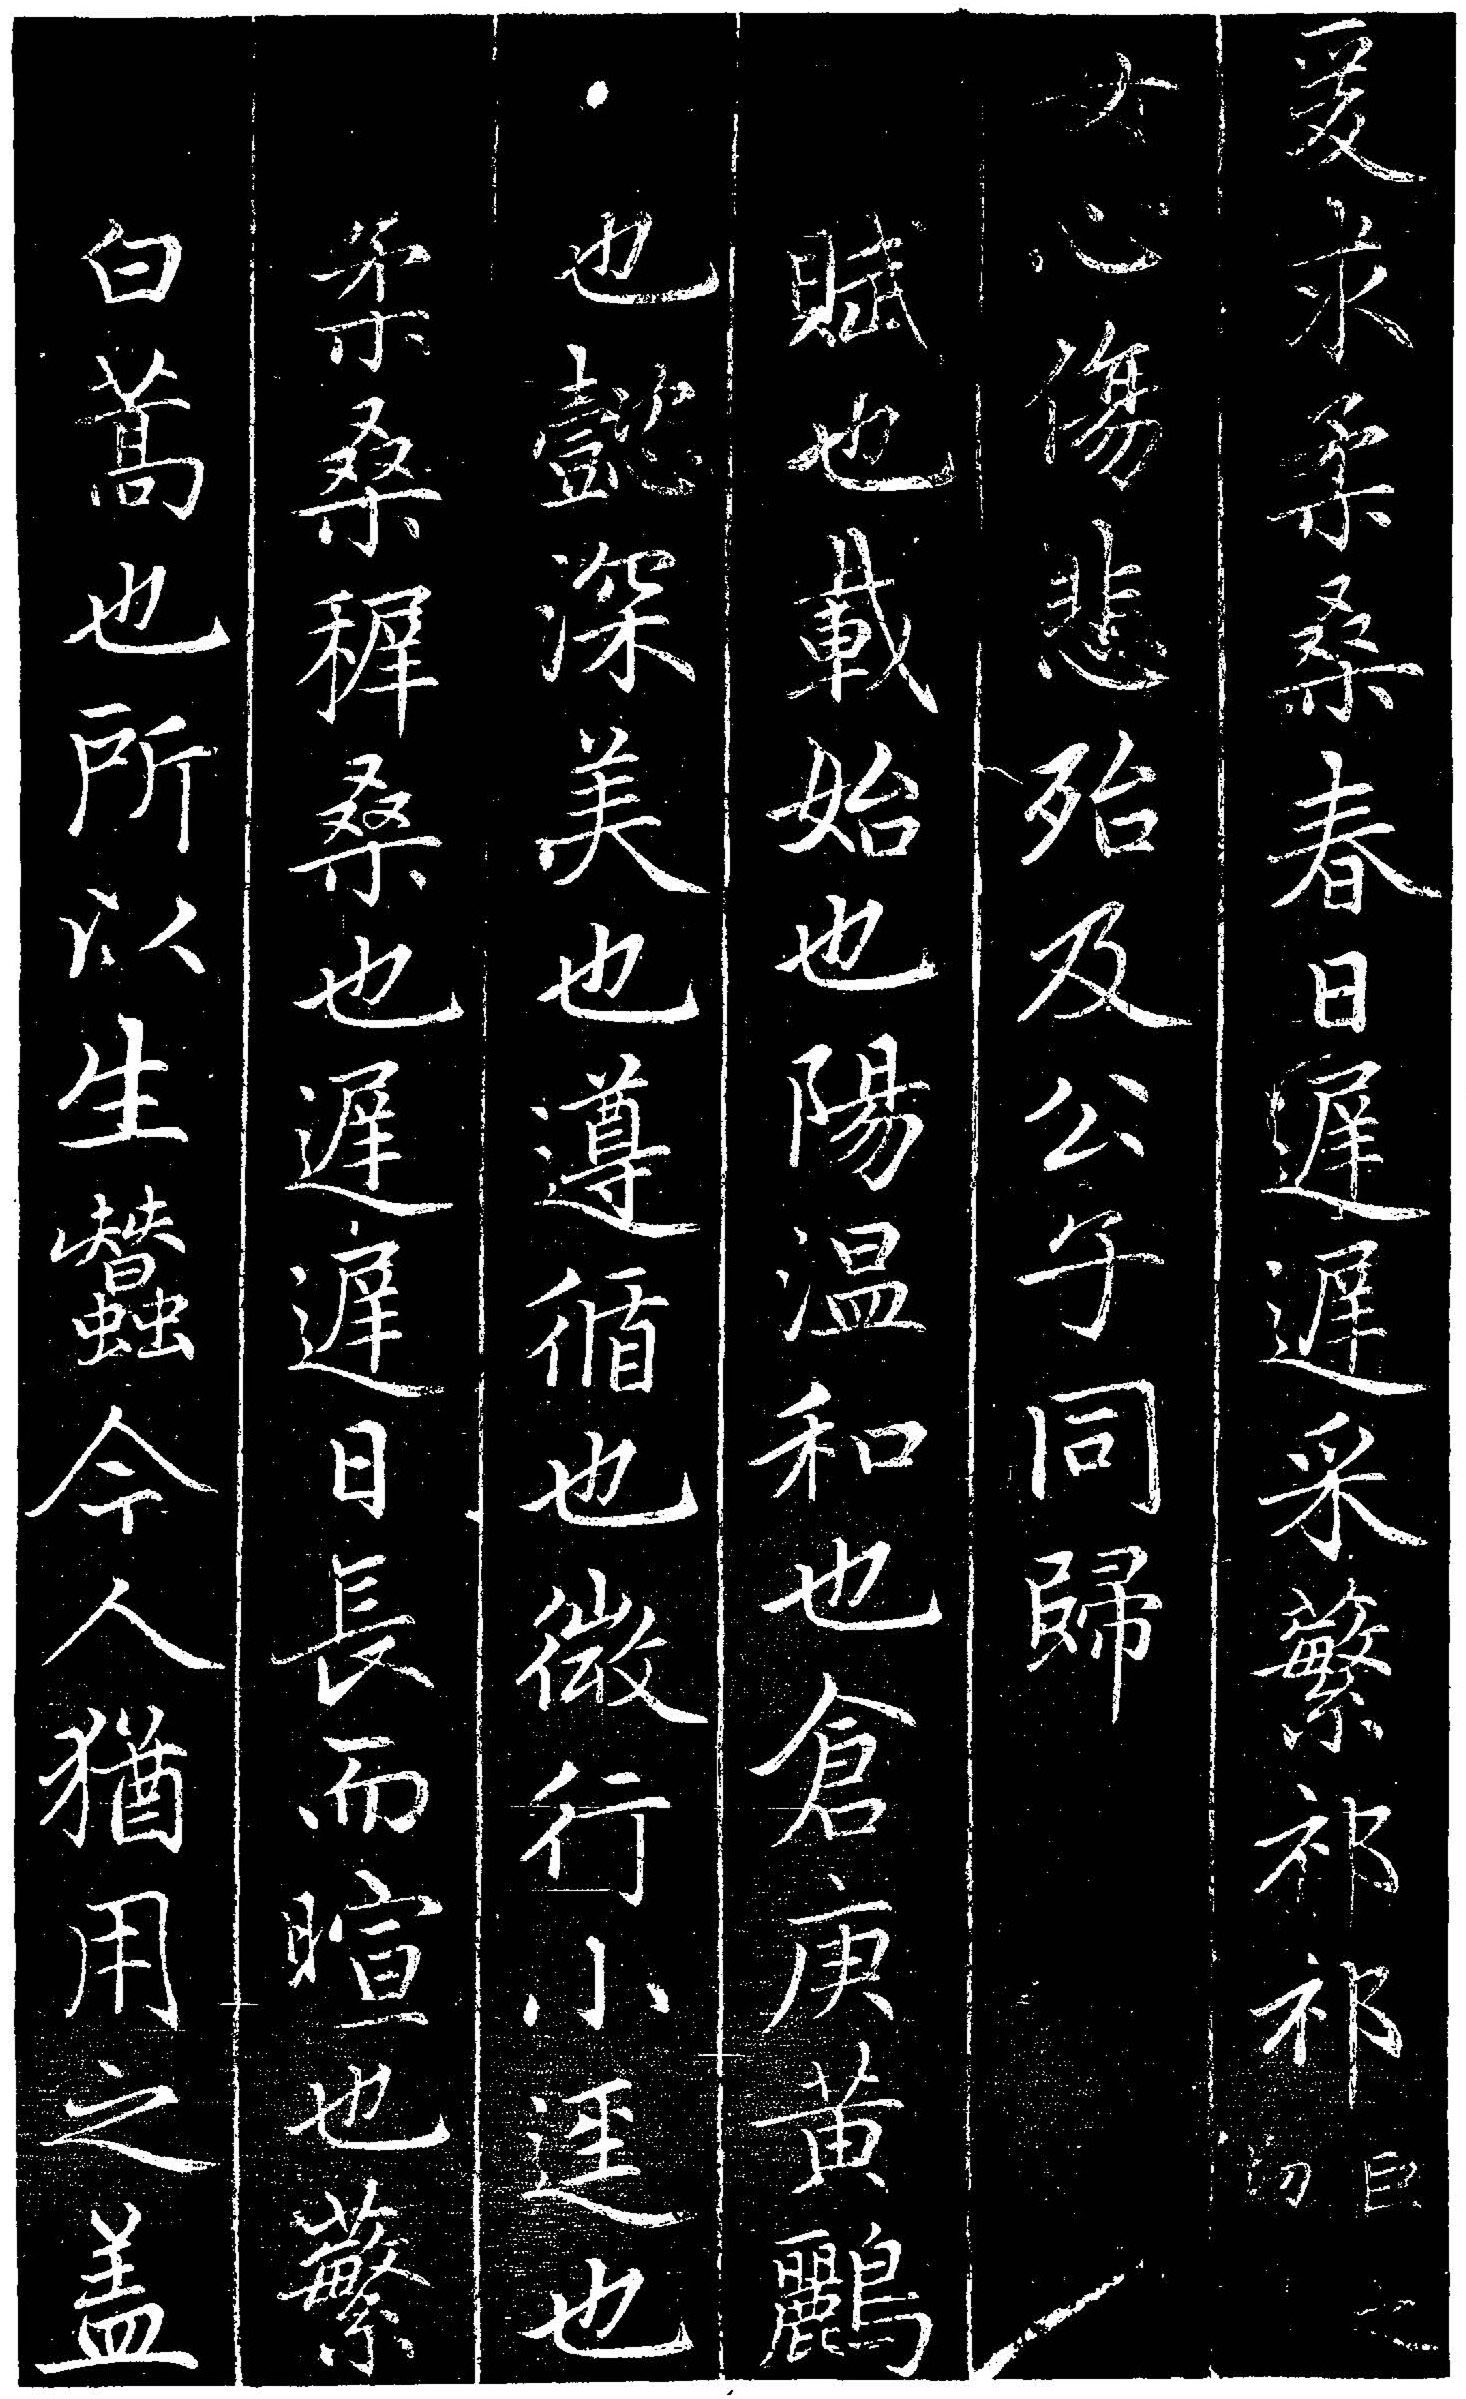 爰求柔桑春日遲遲采蘩祁祁巨之切
女心傷悲殆及公子同歸
賦也載始也陽温和也倉庚黃鸝
也懿深美也遵循也微行小逕也
柔桑穉桑也遲遲日長而暄也蘩
白蒿也所以生蠶今人猶用之盖